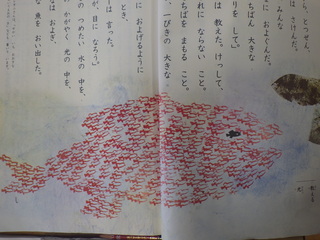 ら、とつぜん、
は さけんだ。
みんな
に およぐんだ。
ちばん 大きな
りを して。」
は 教えた。けっして、
れに ならない こと。
ちばを まもる こと。
、一ぴきの 大きな
に およげるように
とき、
ーは 言った。
が、目に なろう。」
の つめたい 水の 中を、
の かがやく 光の 中を、
な 魚を おい出した。